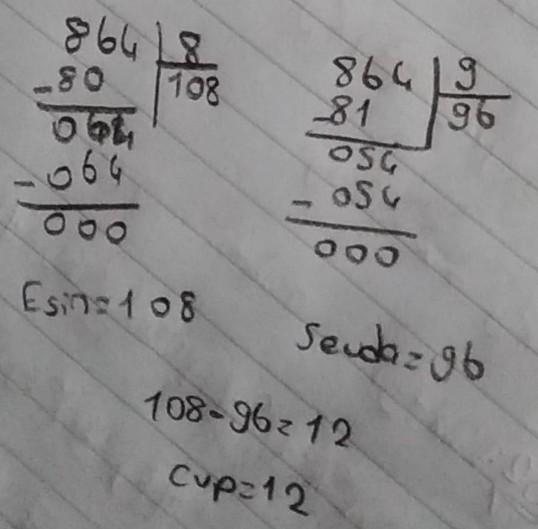 864 8
-80 108
064
-064
000
864 9
-81 96
054
-054
000
Esin=108
Sevda=96
108-96=12
Cvp=12